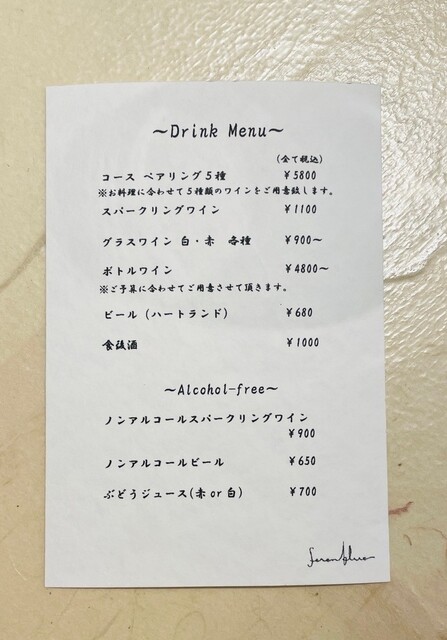 ～Drink Menu～
(全て税込)
コース ペアリング５種 ￥5800
※お料理に合わせて５種類のワインをご用意致します。
スパークリングワイン ￥1100
グラスワイン 白・赤 各種 ￥900～
ボトルワイン ￥4800～
※ご予算に合わせてご用意させて頂きます。
ビール（ハートランド） ￥680
食後酒 ￥1000
～Alcohol-free～
ノンアルコールスパークリングワイン
￥900
ノンアルコールビール ￥650
ぶどうジュース(赤 or 白) ￥700